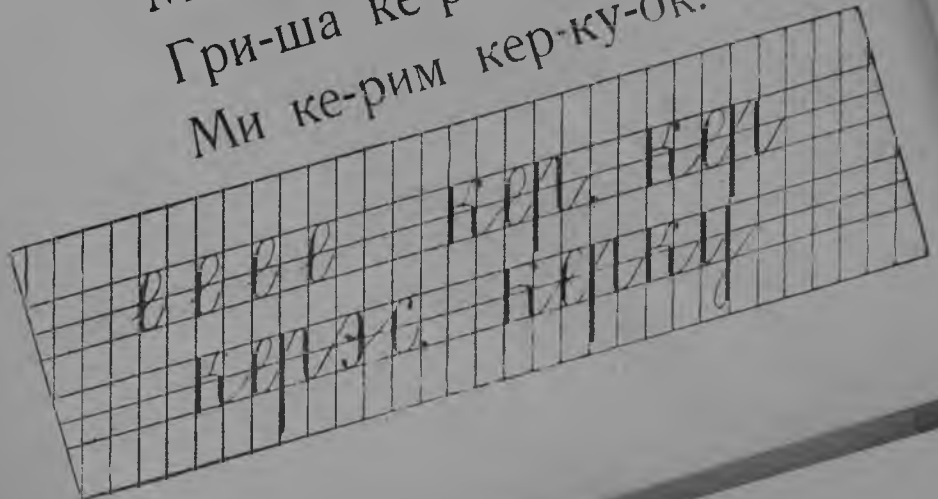 Гри-ша
Ми ке-рим кер-ку-ок.
е е е е кер. кер
керэс. керку